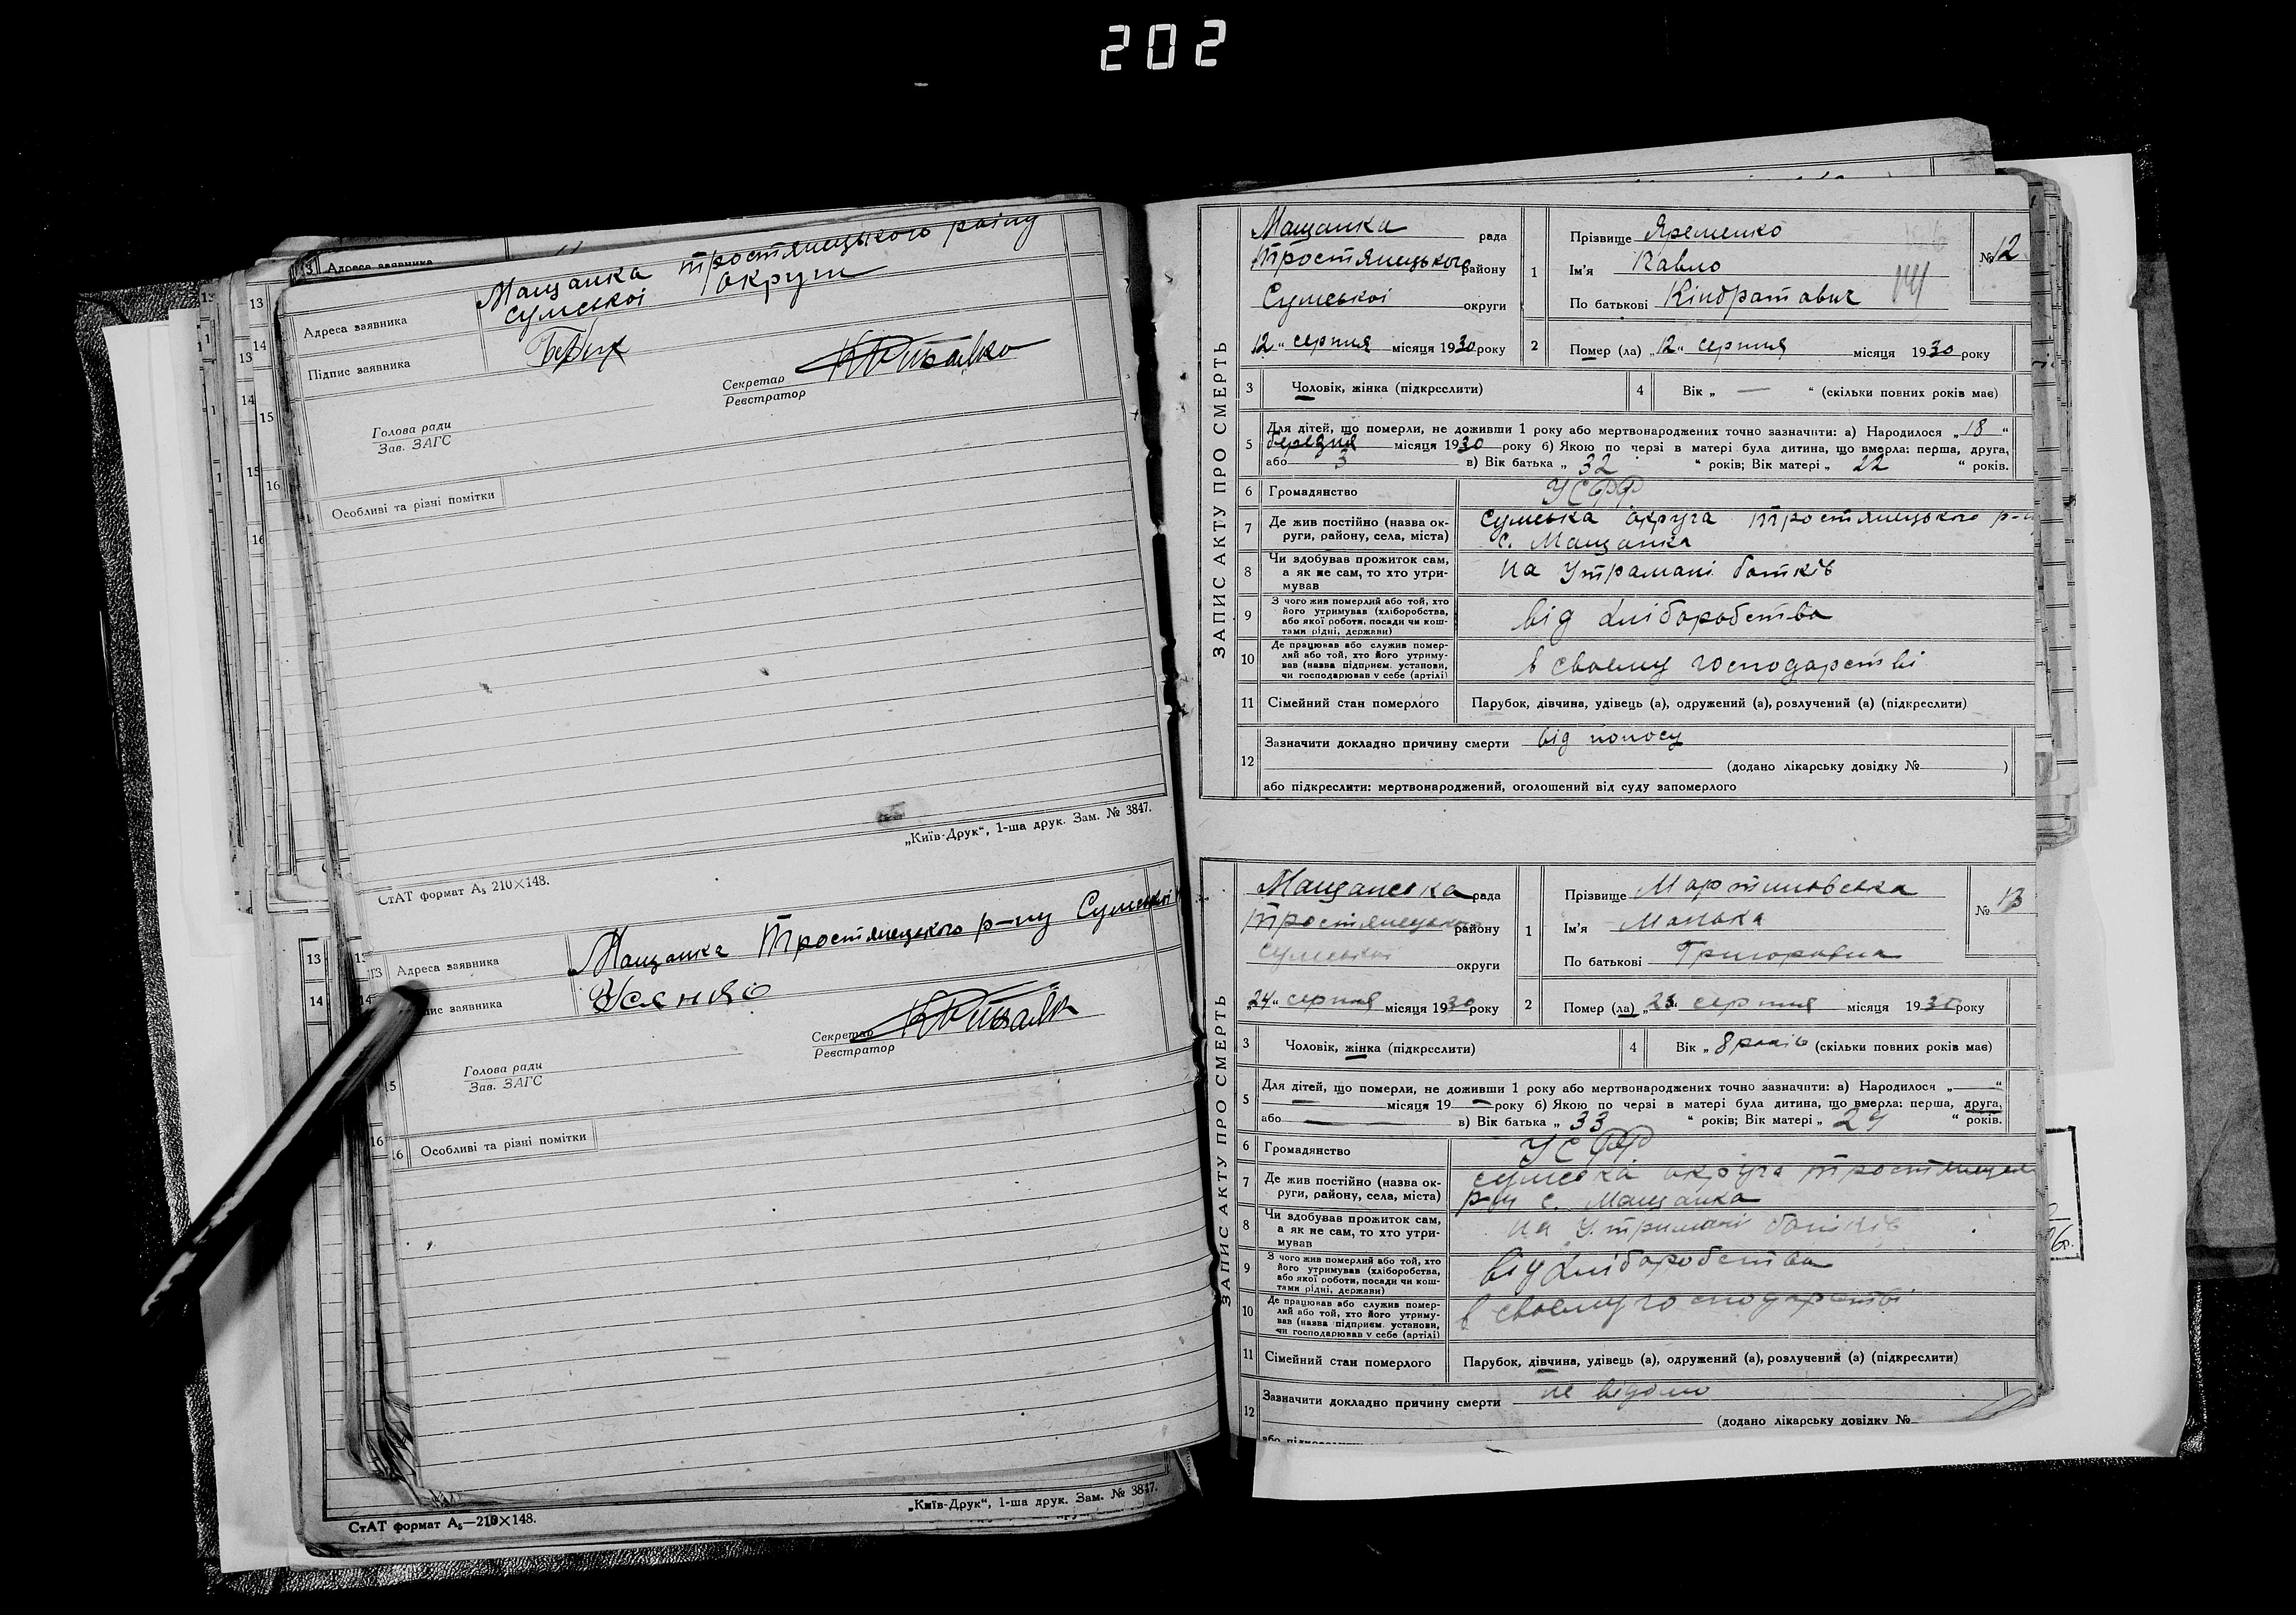 202
3 Адреса заявника
Адреса заявника Мащанка тростянецького раіну
сумськоі округи
Підпис заявника
Секретар
Реєстратор
Голова ради
Зав. ЗАГС
Особливі та різні помітки
„Київ-Друк“, 1-ша друк. Зам. № 3847.
СтАТ формат А₅ 210×148.
13 Адреса заявника Мащанка Тростянецького р-ну Сумськоі
14 пис заявника Усенко
Секретар
Реєстратор
Голова ради
Зав. ЗАГС
16 Особливі та різні помітки
„Київ-Друк“, 1-ша друк. Зам. № 3847.
СтАТ формат А₅—210×148.
ЗАПИС АКТУ ПРО СМЕРТЬ
Мащанка рада
Тростянецького району
Сумськоі округи
12 „ серпня місяця 1930 року
1 Прізвище Яременко
Ім'я Павло
По батькові Кіндратович
№ 12
2 Помер (ла) „12“ серпня місяця 1930 року
3 Чоловік, жінка (підкреслити)
4 Вік „ — “ (скільки повних років має)
5 Для дітей, що померли, не доживши 1 року або мертвонароджених точно зазначити: а) Народилося „18“
березня місяця 1930 року б) Якою по черзі в матері була дитина, що вмерла: перша, друга,
або 3 в) Вік батька „ 32 “ років; Вік матері „ 22 “ років.
6 Громадянство УСРР
7 Де жив постійно (назва округи, району, села, міста) сумська округа тростянецького р-н
с. Мащанка
8 Чи здобував прожиток сам, а як не сам, то хто утримував на утрамані батків
9 З чого жив померлий або той, хто його утримував (хліборобства, або якої роботи, посади чи коштами рідні, держави) від хліборобства
10 Де працював або служив померлий або той, хто його утримував (назва підприєм. установи, чи господарював у себе (артілі) в своему господарстві
11 Сімейний стан померлого Парубок, дівчина, удівець (а), одружений (а), розлучений (а) (підкреслити)
12 Зазначити докладно причину смерти від поносу
(додано лікарську довідку № )
або підкреслити: мертвонароджений, оголошений від суду запомерлого
ЗАПИС АКТУ ПРО СМЕРТЬ
Мащанська рада
Тростянецького району
Сумськоі округи
„24“ серпня місяця 1930 року
1 Прізвище Мартиновська
Ім'я Манька
По батькові Григоровна
№ 13
2 Помер (ла) „23“ серпня місяця 1930 року
3 Чоловік, жінка (підкреслити)
4 Вік „ 8 років (скільки повних років має)
5 Для дітей, що померли, не доживши 1 року або мертвонароджених точно зазначити: а) Народилося „ — “
— місяця 19 — року б) Якою по черзі в матері була дитина, що вмерла: перша, друга,
або — в) Вік батька „ 33 “ років; Вік матері „ 29 “ років.
6 Громадянство УСРР
7 Де жив постійно (назва округи, району, села, міста) сумська округа тростянецьк
р-ну с. Мащанка
8 Чи здобував прожиток сам, а як не сам, то хто утримував на утримані батків
9 З чого жив померлий або той, хто його утримував (хліборобства, або якої роботи, посади чи коштами рідні, держави) від хліборобства
10 Де працював або служив померлий або той, хто його утримував (назва підприєм. установи, чи господарював у себе (артілі) в своему господарстві
11 Сімейний стан померлого Парубок, дівчина, удівець (а), одружений (а), розлучений (а) (підкреслити)
12 Зазначити докладно причину смерти не відомо
(додано лікарську довідку №